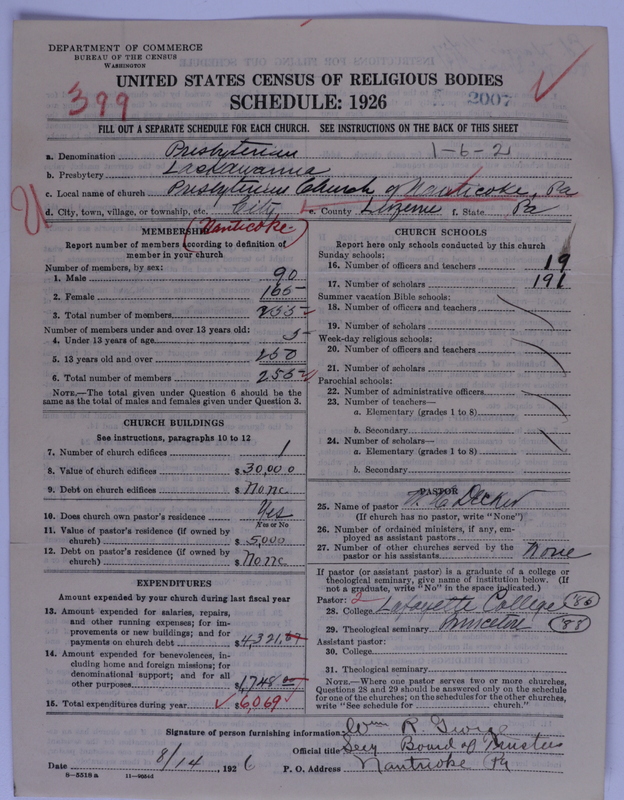 DEPARTMENT OF COMMERCE
BUREAU OF THE CENSUS
WASHINGTON
UNITED STATES CENSUS OF RELIGIOUS BODIES
399
SCHEDULE: 1926
2007
FILL OUT A SEPARATE SCHEDULE FOR EACH CHURCH. SEE INSTRUCTIONS ON THE BACK OF THIS SHEET
a. Denomination Presbyterian 1-6-2
b. Presbytery Lackawanna
c. Local name of church Presbyterian Church of Nanticoke, Pa
d. City, town, village, or township, etc. City e. County Luzerne f. State Pa
Nanticoke
MEMBERSHIP
Report number of members according to definition of
member in your church
Number of members, by sex:
1. Male 90
2. Female 165
3. Total number of members 255
Number of members under and over 13 years old:
4. Under 13 years of age 5
5. 13 years old and over 250
6. Total number of members 255
NOTE.—The total given under Question 6 should be the
same as the total of males and females given under Question 3.
CHURCH BUILDINGS
See instructions, paragraphs 10 to 12
7. Number of church edifices 1
8. Value of church edifices $ 30,000
9. Debt on church edifices $ None
10. Does church own pastor's residence Yes
Yes or No
11. Value of pastor's residence (if owned by
church) $ 5,000
12. Debt on pastor's residence (if owned by
church) $ None
EXPENDITURES
Amount expended by your church during last fiscal year
13. Amount expended for salaries, repairs,
and other running expenses; for im-
provements or new buildings; and for
payments on church debt $ 4,321.
14. Amount expended for benevolences, in-
cluding home and foreign missions; for
denominational support; and for all
other purposes $ 1,748
15. Total expenditures during year $ 6,069
CHURCH SCHOOLS
Report here only schools conducted by this church
Sunday schools:
16. Number of officers and teachers 19
17. Number of scholars 191
Summer vacation Bible schools:
18. Number of officers and teachers
19. Number of scholars
Week-day religious schools:
20. Number of officers and teachers
21. Number of scholars
Parochial schools:
22. Number of administrative officers
23. Number of teachers—
a. Elementary (grades 1 to 8)
b. Secondary
24. Number of scholars—
a. Elementary (grades 1 to 8)
b. Secondary
PASTOR
25. Name of pastor Decker
(If church has no pastor, write "None")
26. Number of ordained ministers, if any, em-
ployed as assistant pastors
27. Number of other churches served by the
pastor or his assistants None
If pastor (or assistant pastor) is a graduate of a college or
theological seminary, give name of institution below. (If
not a graduate, write "No" in the space indicated.)
Pastor: 2
28. College Lafayette College '86
29. Theological seminary Princeton '88
Assistant pastor:
30. College
31. Theological seminary
NOTE.—Where one pastor serves two or more churches,
Questions 28 and 29 should be answered only on the schedule
for one of the churches; on the schedules for the other churches,
write "See schedule for church."
Signature of person furnishing information Wm R. George
Official title Secy Board of Trustees
Date 8/14, 1926 P. O. Address Nanticoke Pa
8—5518a 11—9054d